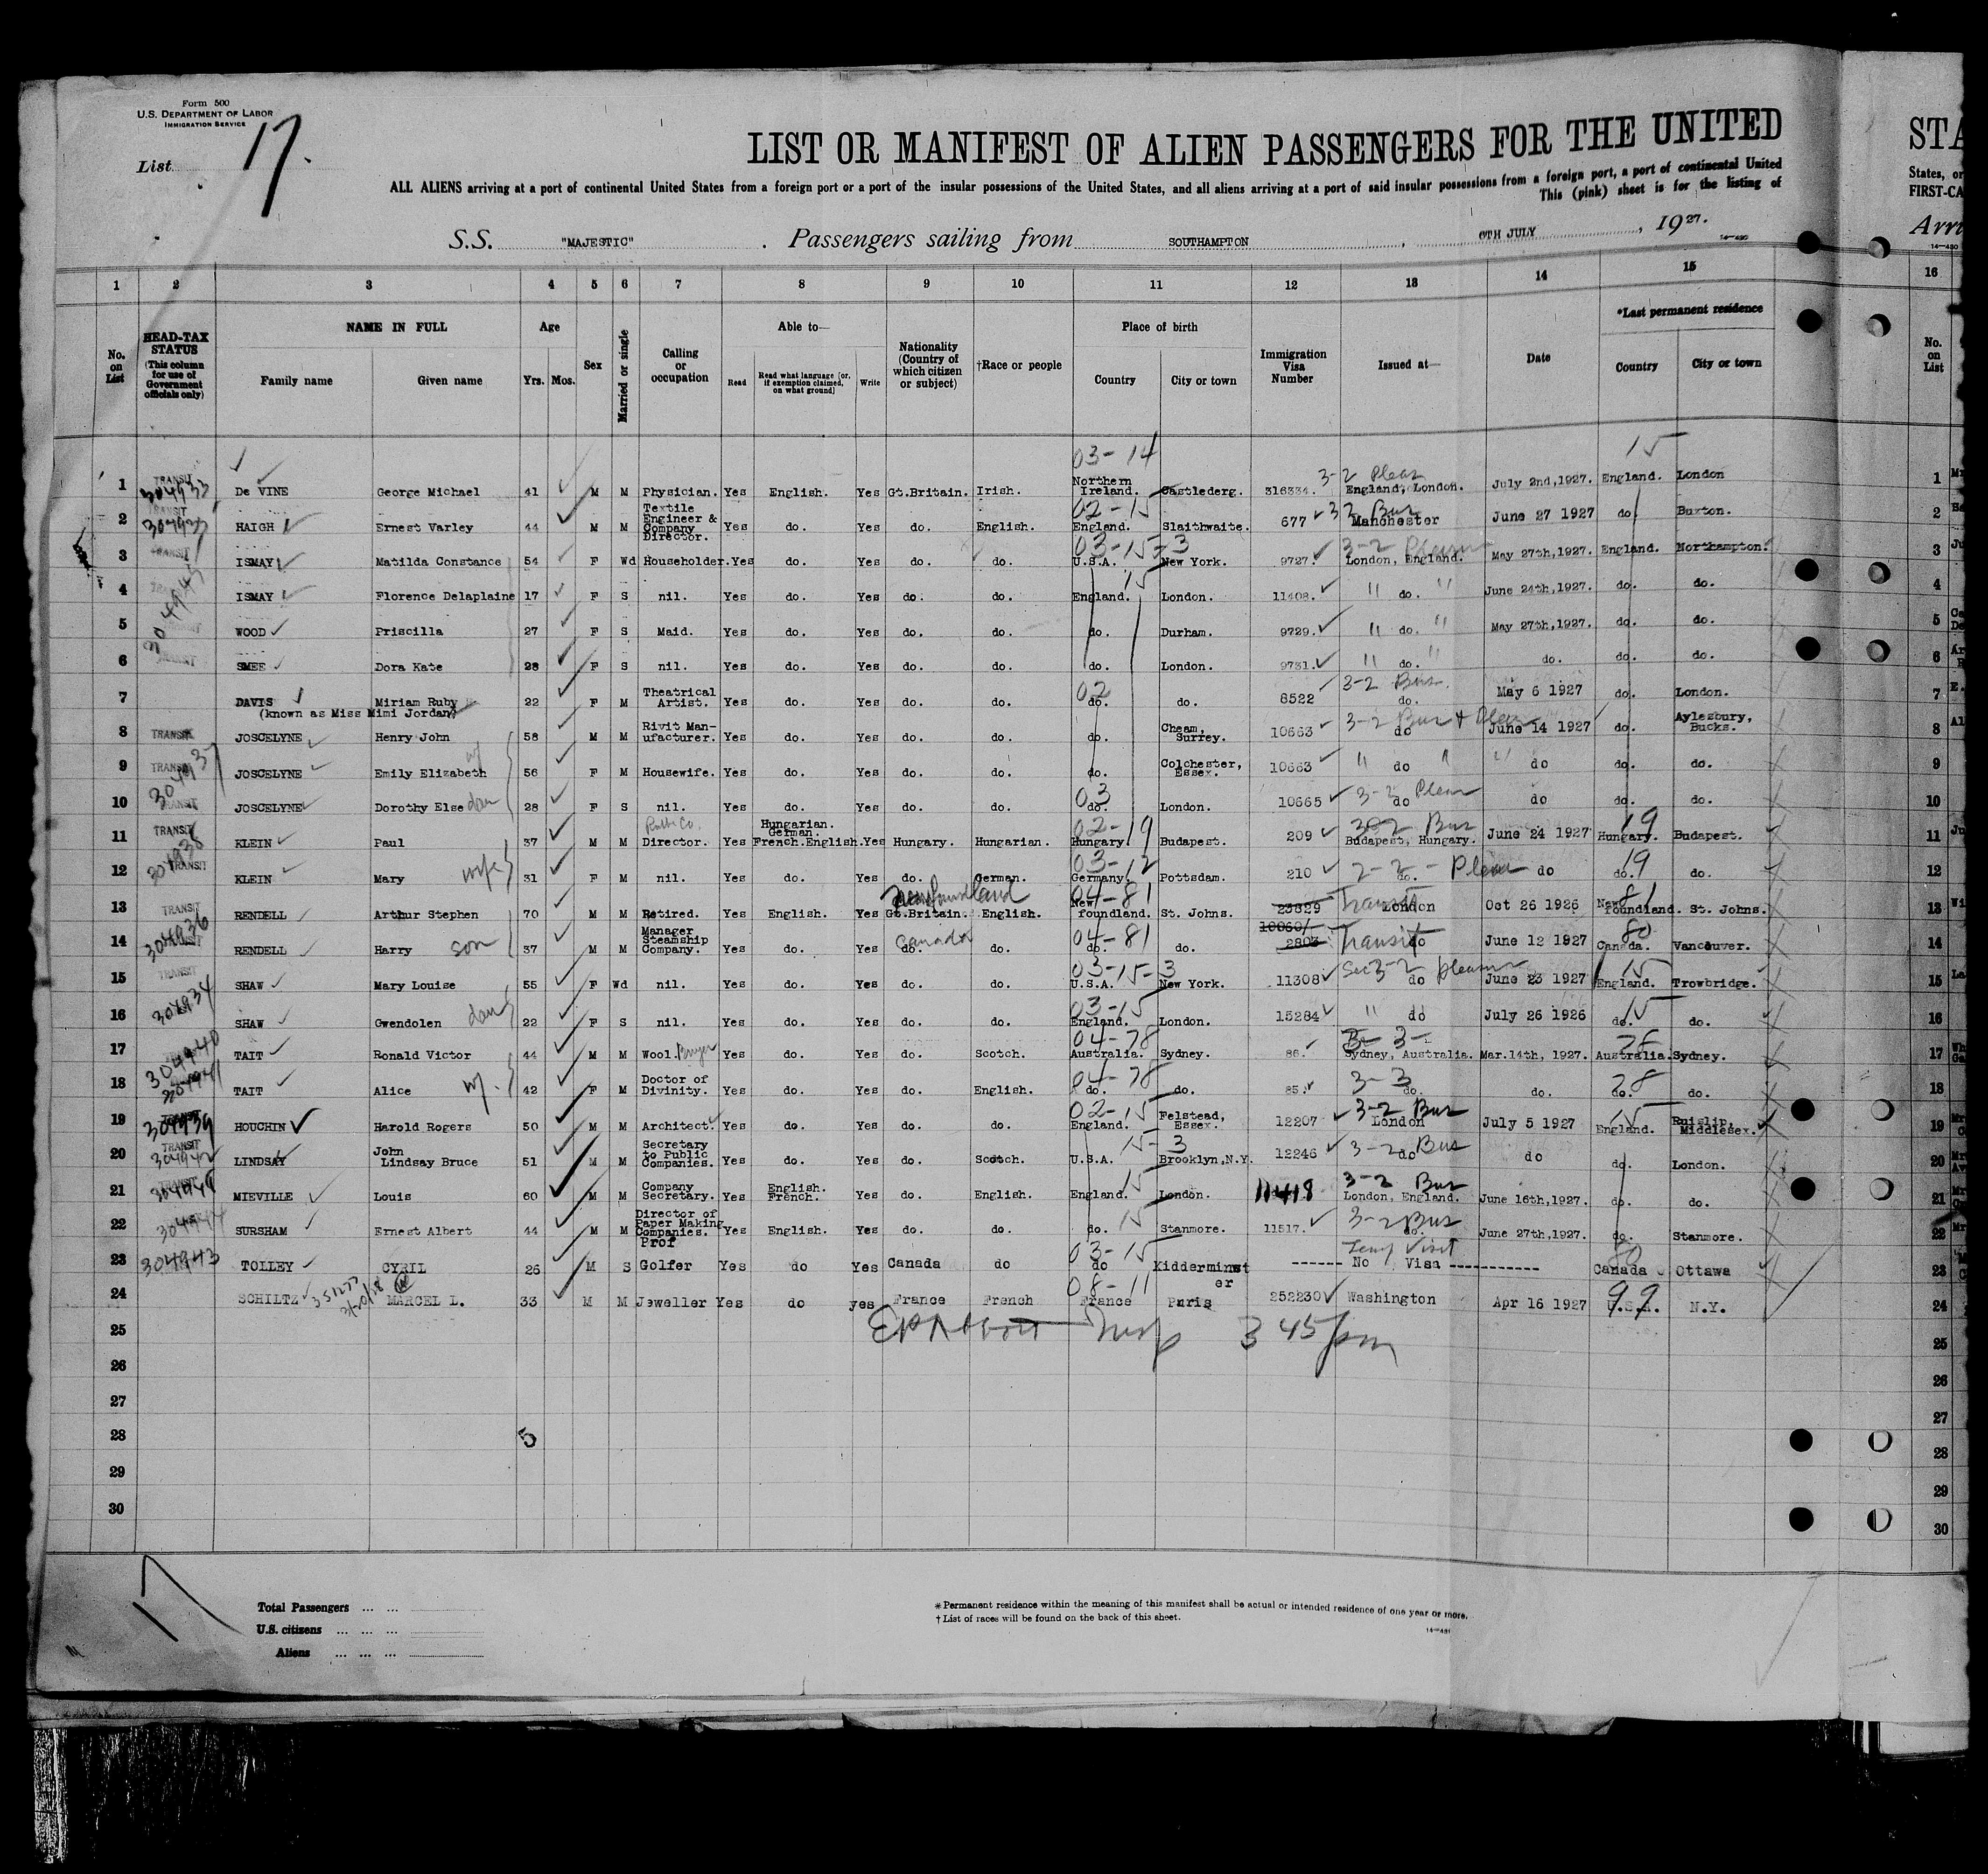 Form 500
U.S. DEPARTMENT OF LABOR
IMMIGRATION SERVICE
List 17.
LIST OR MANIFEST OF ALIEN PASSENGERS FOR THE UNITED
STA
ALL ALIENS arriving at a port of continental United States from a foreign port or a port of the insular possessions of the United States, and all aliens arriving at a port of said insular possessions from a foreign port, a port of continental United
States, or
This (pink) sheet is for the listing of
FIRST-CA
S.S. "MAJESTIC". Passengers sailing from SOUTHAMPTON, 6TH JULY, 1927.
Arri
14—430
1 2 3 4 5 6 7 8 9 10 11 12 13 14 15 16
No. on List
HEAD-TAX STATUS (This column for use of Government officials only)
NAME IN FULL
Family name Given name
Age
Yrs. Mos.
Sex
Married or single
Calling or occupation
Able to—
Read
Read what language (or, if exemption claimed, on what ground)
Write
Nationality (Country of which citizen or subject)
†Race or people
Place of birth
Country City or town
Immigration Visa Number
Issued at—
Date
*Last permanent residence
Country City or town
No. on List
03-14 15
1 TRANSIT 304933 De VINE George Michael 41 M M Physician. Yes English. Yes Gt.Britain. Irish. Northern Ireland. Castlederg. 316334. 3-2 Pleas England, London. July 2nd,1927. England. London 1
2 TRANSIT HAIGH Ernest Varley 44 M M Textile Engineer & Company Director. Yes do. Yes do. English. 02-15 England. Slaithwaite. 677 3-2 Bus Manchester June 27 1927 do. Buxton. 2
3 TRANSIT ISMAY Matilda Constance 54 F Wd Householder. Yes do. Yes do. do. 03-15-3 U.S.A. New York. 9727. 3-2 Pleasure London, England. May 27th,1927. England. Northampton. 3
4 ISMAY Florence Delaplaine 17 F S nil. Yes do. Yes do. do. 15 England. London. 11408. " do. " June 24th,1927. do. do. 4
5 WOOD Priscilla 27 F S Maid. Yes do. Yes do. do. do. Durham. 9729. " do. " May 27th,1927. do. do. 5
6 TRANSIT SMEE Dora Kate 28 F S nil. Yes do. Yes do. do. do. London. 9731. " do. " do. do. do. 6
7 DAVIS Miriam Ruby 22 F M Theatrical Artist. Yes do. Yes do. do. 02 do. do. 8522 3-2 Bus. do. May 6 1927 do. London. 7
(known as Miss Mimi Jordan)
8 TRANSIT JOSCELYNE Henry John 58 M M Rivit Manufacturer. Yes do. Yes do. do. do. Cheam, Surrey. 10663 3-2 Bus + Pleas do June 14 1927 do. Aylesbury, Bucks. 8
9 TRANSIT JOSCELYNE Emily Elizabeth w/ 56 F M Housewife. Yes do. Yes do. do. do. Colchester, Essex. 10663 " do " " do do. do. 9
10 TRANSIT JOSCELYNE Dorothy Else dau 28 F S nil. Yes do. Yes do. do. 03 do. London. 10665 3-2 Pleas do do do. do. 10
11 TRANSIT 304938 KLEIN Paul 37 M M Director. Yes Hungarian. German. French.English. Yes Hungary. Hungarian. 02-19 Hungary Budapest. 209 3-2 Bus Budapest, Hungary. June 24 1927 19 Hungary. Budapest. 11
12 TRANSIT KLEIN Mary wife 31 F M nil. Yes do. Yes do. German. 03-12 Germany. Pottsdam. 210 2-2 - Pleasure do. do 19 do. do. 12
13 TRANSIT RENDELL Arthur Stephen 70 M M Retired. Yes English. Yes Newfoundland Gt.Britain. English. 04-81 Newfoundland. St. Johns. 23829 Transit London Oct 26 1926 81 Newfoundland. St. Johns. 13
14 304936 RENDELL Harry son 37 M M Manager Steamship Company. Yes do. Yes Canada do. do. 04-81 do. do. 10060/ 2803 Transit do June 12 1927 80 Canada. Vancouver. 14
15 TRANSIT SHAW Mary Louise 55 F Wd nil. Yes do. Yes do. do. 03-15-3 U.S.A. New York. 11308 Sec 3-2 pleasure do June 23 1927 15 England. Trowbridge. 15
16 304934 SHAW Gwendolen dau 22 F S nil. Yes do. Yes do. do. 03-15 England. London. 15284 " do July 26 1926 15 do. do. 16
17 304940 TAIT Ronald Victor 44 M M Wool. Buyer Yes do. Yes do. Scotch. 04-78 Australia. Sydney. 86. 3- Sydney, Australia. Mar.14th, 1927. Australia. Sydney. 17
18 304941 TAIT Alice w. 42 F M Doctor of Divinity. Yes do. Yes do. English. 04-78 do. do. 85. 3-3 do. do. 78 do. do. 18
19 TRANSIT 304939 HOUCHIN Harold Rogers 50 M M Architect. Yes do. Yes do. do. 02-15 England. Felstead, Essex. 12207 3-2 Bus London July 5 1927 15 England. Ruislip, Middlesex. 19
20 TRANSIT 304942 LINDSAY John Lindsay Bruce 51 M M Secretary to Public Companies. Yes do. Yes do. Scotch. 15-3 U.S.A. Brooklyn,N.Y. 12246 3-2 Bus do do do. London. 20
21 TRANSIT MIEVILLE Louis 60 M M Company Secretary. Yes English. French. Yes do. English. 15 England. London. 11418 3-2 Bus London, England. June 16th,1927. do. do. 21
22 SURSHAM Ernest Albert 44 M M Director of Paper Making Companies. Yes English. Yes do. do. 15 do. Stanmore. 11517. 3-2 Bus do. June 27th,1927. do. Stanmore. 22
23 304943 TOLLEY CYRIL 26 M S Prof Golfer Yes do Yes Canada do 03-15 do Kidderminster ------ Temp Visit No Visa ----------- 80 Canada Ottawa 23
24 SCHILTZ MARCEL L. 33 M M Jeweller Yes do yes France French 08-11 France Paris 252230 Washington Apr 16 1927 99 U.S.A. N.Y. 24
25 Insp 3 45 pm 25
26 26
27 27
28 5 28
29 29
30 30
17
Total Passengers ... ...
U.S. citizens ... ... ...
Aliens ... ... ...
*Permanent residence within the meaning of this manifest shall be actual or intended residence of one year or more.
†List of races will be found on the back of this sheet.
14—431